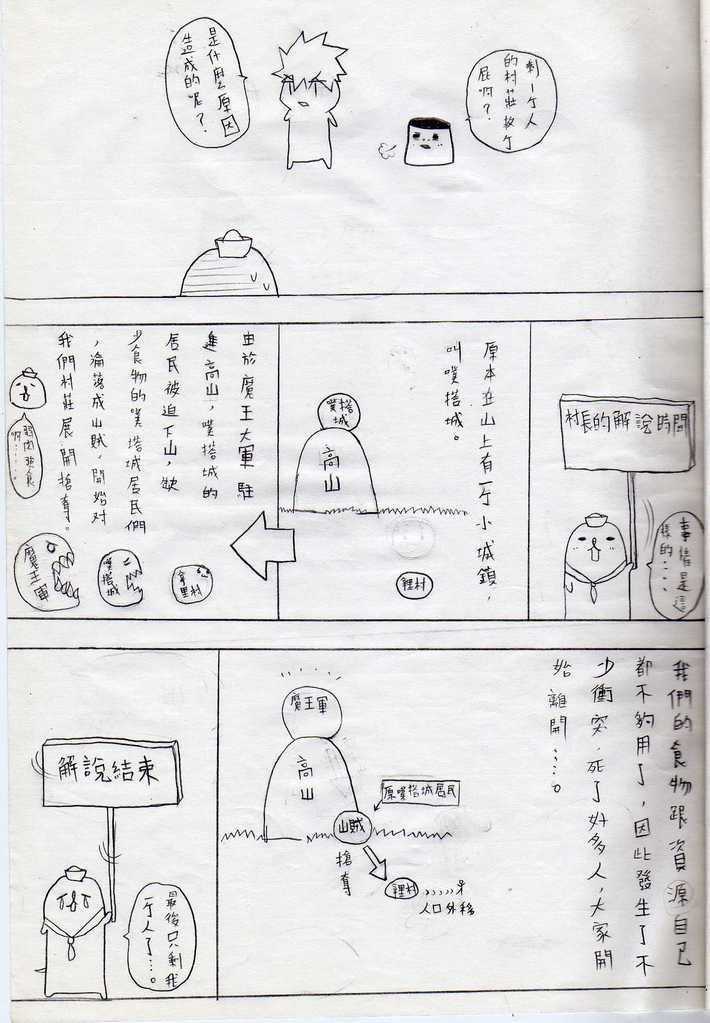 剩一个人
的村莊救个
屁啊?
是什麼原因
造成的呢?
村長的解說時間
事情是這
樣的....
原本在山上有一个小城鎮,
叫噗搭城。
噗搭
城
高
山
裡村
由於魔王大軍駐
進高山,噗搭城的
居民被迫下山,缺
少食物的噗塔城居民們
,淪落成山賊,開始對
我們村莊展開搶奪。
魔王軍
噗搭城
我們的食物跟資源自己
都不夠用了,因此發生了不
少衝突,死了好多人,大家開
始離開....。
魔王軍
高
山
原噗搭城居民
山賊
搶奪
裡村
人口外移
解說結束
最後只剩我
一个人了...。